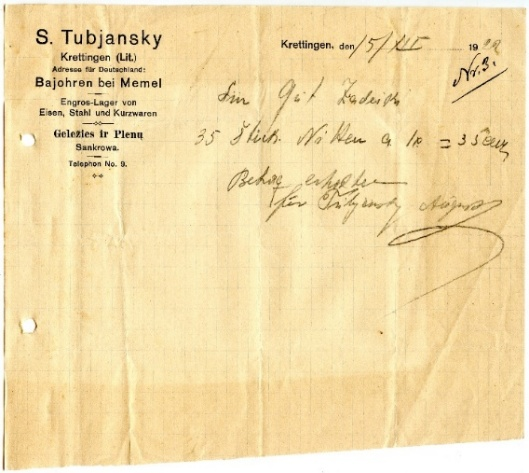 S. Tubjansky
Krettingen (Lit.)
Adresse für Deutschland:
Bajohren bei Memel
Engros-Lager von
Eisen, Stahl und Kurzwaren
Geležies ir Plenų
Sankrowa.
Telephon No. 9.
Krettingen, den 15/XII 19
Nr. 3.
Gut
35 Stück a 10 = 35
Betrag erhalten
für Tubjansky